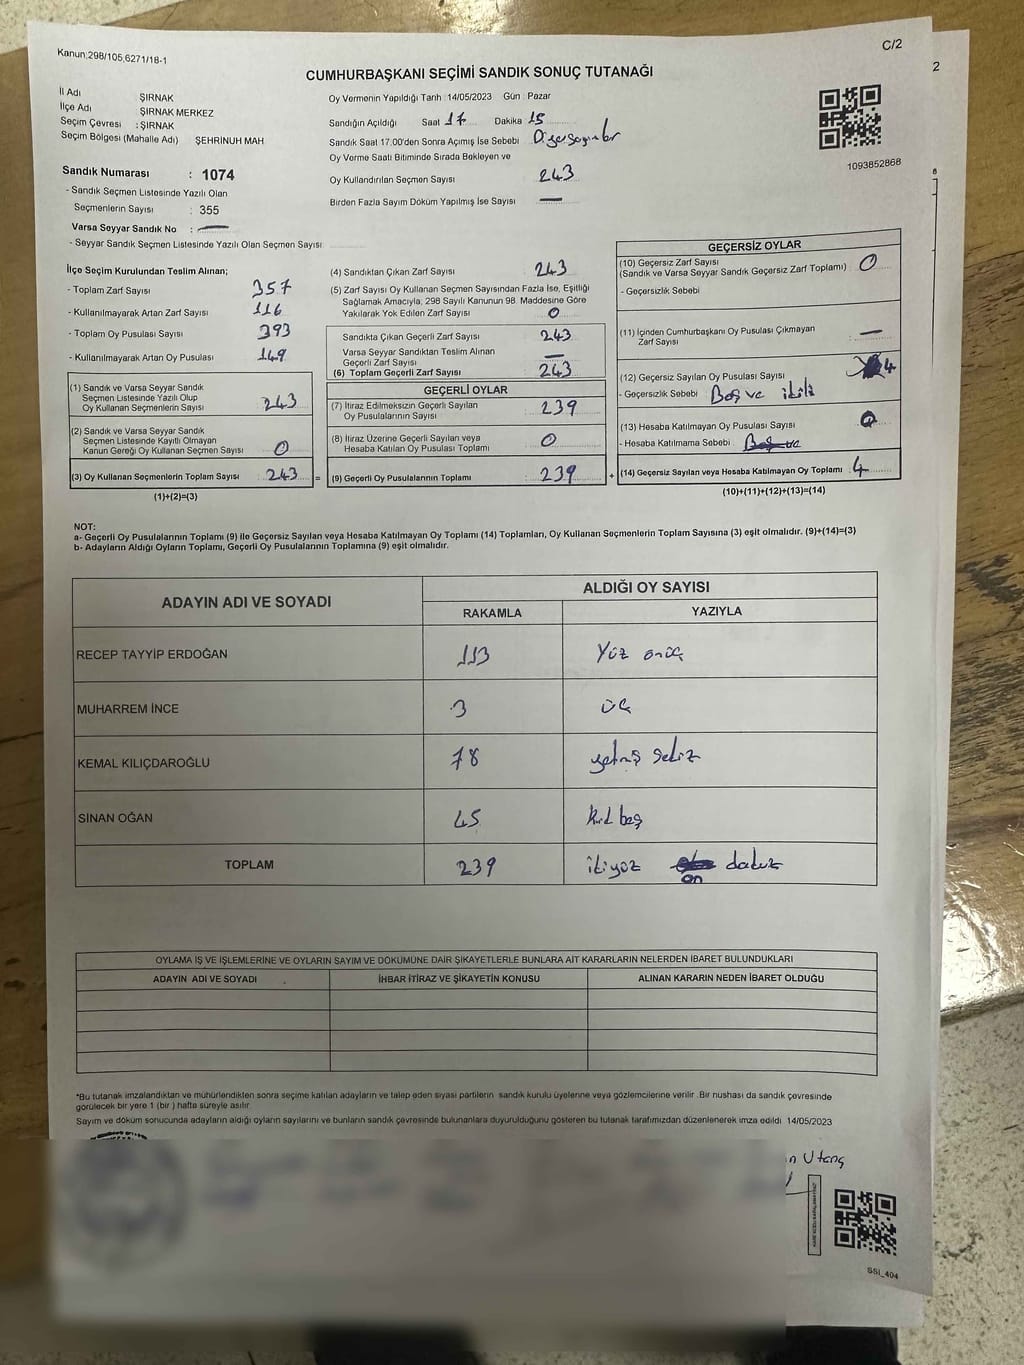 Kanun:298/105,6271/18-1
C/2
2
CUMHURBAŞKANI SEÇİMİ SANDIK SONUÇ TUTANAĞI
İl Adı ŞIRNAK
İlçe Adı : ŞIRNAK MERKEZ
Seçim Çevresi : ŞIRNAK
Seçim Bölgesi (Mahalle Adı) ŞEHRİNUH MAH
Sandık Numarası : 1074
- Sandık Seçmen Listesinde Yazılı Olan
Seçmenlerin Sayısı : 355
Varsa Seyyar Sandık No : —
- Seyyar Sandık Seçmen Listesinde Yazılı Olan Seçmen Sayısı
Oy Vermenin Yapıldığı Tarih : 14/05/2023 Gün : Pazar
Sandığın Açıldığı Saat 17 Dakika 15
Sandık Saat 17.00'den Sonra Açımış İse Sebebi
Oy Verme Saati Bitiminde Sırada Bekleyen ve
Oy Kullandırılan Seçmen Sayısı 243
Birden Fazla Sayım Döküm Yapılmış İse Sayısı —
1093852868
İlçe Seçim Kurulundan Teslim Alınan;
- Toplam Zarf Sayısı 357
- Kullanılmayarak Artan Zarf Sayısı 116
- Toplam Oy Pusulası Sayısı 393
- Kullanılmayarak Artan Oy Pusulası 149
(1) Sandık ve Varsa Seyyar Sandık
Seçmen Listesinde Yazılı Olup
Oy Kullanan Seçmenlerin Sayısı : 243
(2) Sandık ve Varsa Seyyar Sandık
Seçmen Listesinde Kayıtlı Olmayan
Kanun Gereği Oy Kullanan Seçmen Sayısı 0
(3) Oy Kullanan Seçmenlerin Toplam Sayısı : 243 =
(1)+(2)=(3)
(4) Sandıktan Çıkan Zarf Sayısı 243
(5) Zarf Sayısı Oy Kullanan Seçmen Sayısından Fazla İse, Eşitliği
Sağlamak Amacıyla, 298 Sayılı Kanunun 98. Maddesine Göre
Yakılarak Yok Edilen Zarf Sayısı 0
Sandıkta Çıkan Geçerli Zarf Sayısı 243
Varsa Seyyar Sandıktan Teslim Alınan
Geçerli Zarf Sayısı —
(6) Toplam Geçerli Zarf Sayısı 243
GEÇERLİ OYLAR
(7) İtiraz Edilmeksizin Geçerli Sayılan
Oy Pusulalarının Sayısı : 239
(8) İtiraz Üzerine Geçerli Sayılan veya
Hesaba Katılan Oy Pusulası Toplamı : 0
(9) Geçerli Oy Pusulalarının Toplamı : 239 +
GEÇERSİZ OYLAR
(10) Geçersiz Zarf Sayısı
(Sandık ve Varsa Seyyar Sandık Geçersiz Zarf Toplamı) : 0
- Geçersizlik Sebebi
(11) İçinden Cumhurbaşkanı Oy Pusulası Çıkmayan
Zarf Sayısı : —
(12) Geçersiz Sayılan Oy Pusulası Sayısı 4
- Geçersizlik Sebebi : Boş ve ikili
(13) Hesaba Katılmayan Oy Pusulası Sayısı 0
- Hesaba Katılmama Sebebi : Boş ve
(14) Geçersiz Sayılan veya Hesaba Katılmayan Oy Toplamı : 4
(10)+(11)+(12)+(13)=(14)
NOT:
a- Geçerli Oy Pusulalarının Toplamı (9) ile Geçersiz Sayılan veya Hesaba Katılmayan Oy Toplamı (14) Toplamları, Oy Kullanan Seçmenlerin Toplam Sayısına (3) eşit olmalıdır. (9)+(14)=(3)
b- Adayların Aldığı Oyların Toplamı, Geçerli Oy Pusulalarının Toplamına (9) eşit olmalıdır.
ADAYIN ADI VE SOYADI
ALDIĞI OY SAYISI
RAKAMLA YAZIYLA
RECEP TAYYİP ERDOĞAN 113 Yüz onüç
MUHARREM İNCE 3 üç
KEMAL KILIÇDAROĞLU 78 yetmiş sekiz
SİNAN OĞAN 45 Kırk beş
TOPLAM 239 ikiyüz on dokuz
OYLAMA İŞ VE İŞLEMLERİNE VE OYLARIN SAYIM VE DÖKÜMÜNE DAİR ŞİKAYETLERLE BUNLARA AİT KARARLARIN NELERDEN İBARET BULUNDUKLARI
ADAYIN ADI VE SOYADI İHBAR İTİRAZ VE ŞİKAYETİN KONUSU ALINAN KARARIN NEDEN İBARET OLDUĞU
*Bu tutanak imzalandıktan ve mühürlendikten sonra seçime katılan adayların ve talep eden siyasi partilerin sandık kurulu üyelerine veya gözlemcilerine verilir. Bir nushası da sandık çevresinde
görülecek bir yere 1 (bir) hafta süreyle asılır.
Sayım ve döküm sonucunda adayların aldığı oyların sayılarını ve bunların sandık çevresinde bulunanlara duyurulduğunu gösteren bu tutanak tarafımızdan düzenlenerek imza edildi 14/05/2023
n Utanç
SSİ_404